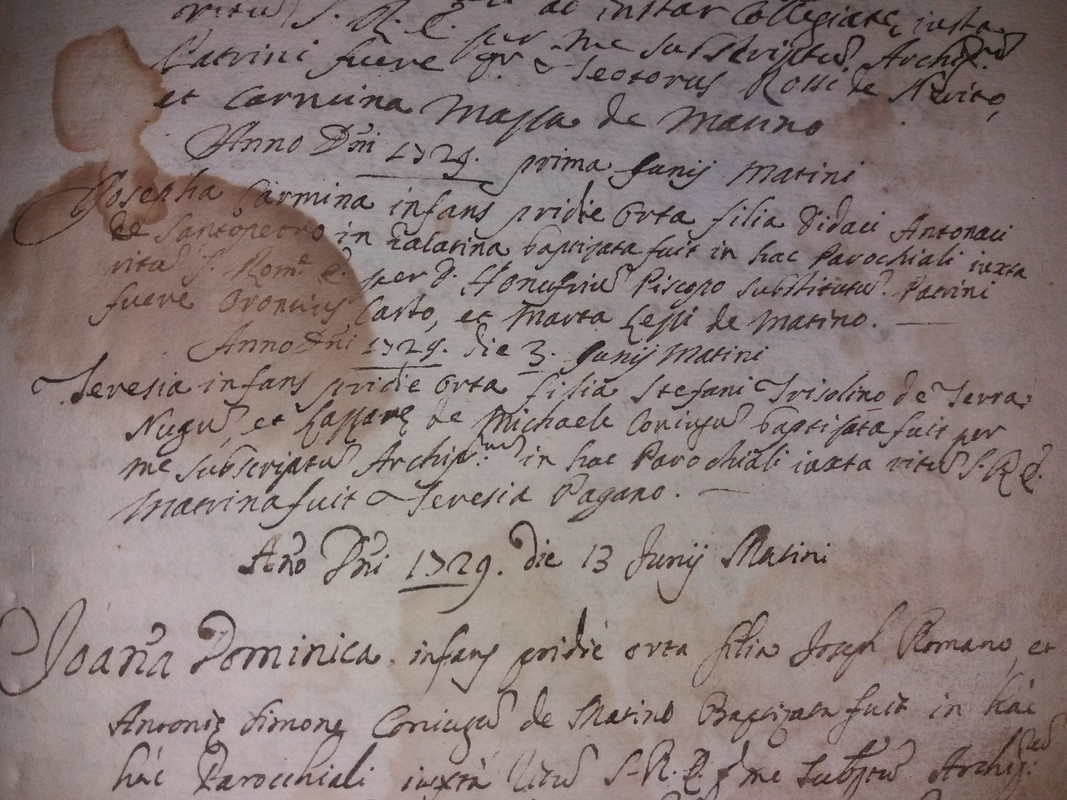 ritu S. R. E. ad instar Collegiatę, iuxta
per me subscriptũ Archip.
Patrini fuere Teotorus Rossi de Nevito,
et Carmina Massa de Matino
Anno Dñi 1729. prima Junij Matini
Josepha Carmina infans pridie orta filia Didaci Antonaci
de Santopetro in Galatina baptizata fuit in hac Parochiali iuxta
ritũ S. Rom.ᵉ E. per D. Honufriũ Piscopo substitutũ. Patrini
fuere Oronuis Carlo, et Marta Lessi de Matino.
Anno Dñi 1729. die 3. Junij Matini
Teresia infans pridie orta filia Stefani Trisolino de Terra
Nugũ, et Lazzarę de Michaele Coniugũ baptizata fuit per
me subscriptũ Archip. in hac Parochiali iuxta ritũ S. R. E.
Matrina fuit Teresia Pagano.
Año Dñi 1729. die 13 Junij Matini
Joaña Dominica infans pridie orta filia Joseph Romano, et
Antonię Simone Coniugũ de Matino Baptizata fuit in hác
hác Parocchiali iuxtà ritũ S. R. E. ꝑ me subptũ Archip: